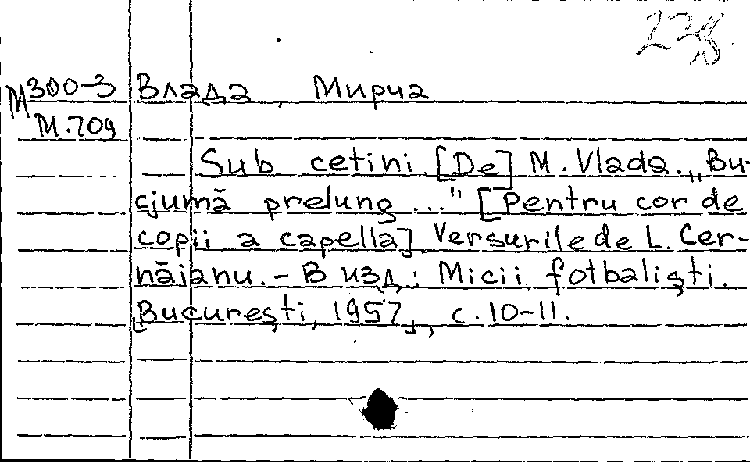 238
М300-3 Влада, Мирча
М.709
Sub cetini [De] M. Vlada. „Bu-
cjumă prelung ..." [Pentru cor de
copii a capella]. Versurile de L. Cer-
năjanu. - В изд.: Micii fotbaliști.
[București, 1957], с. 10-11.